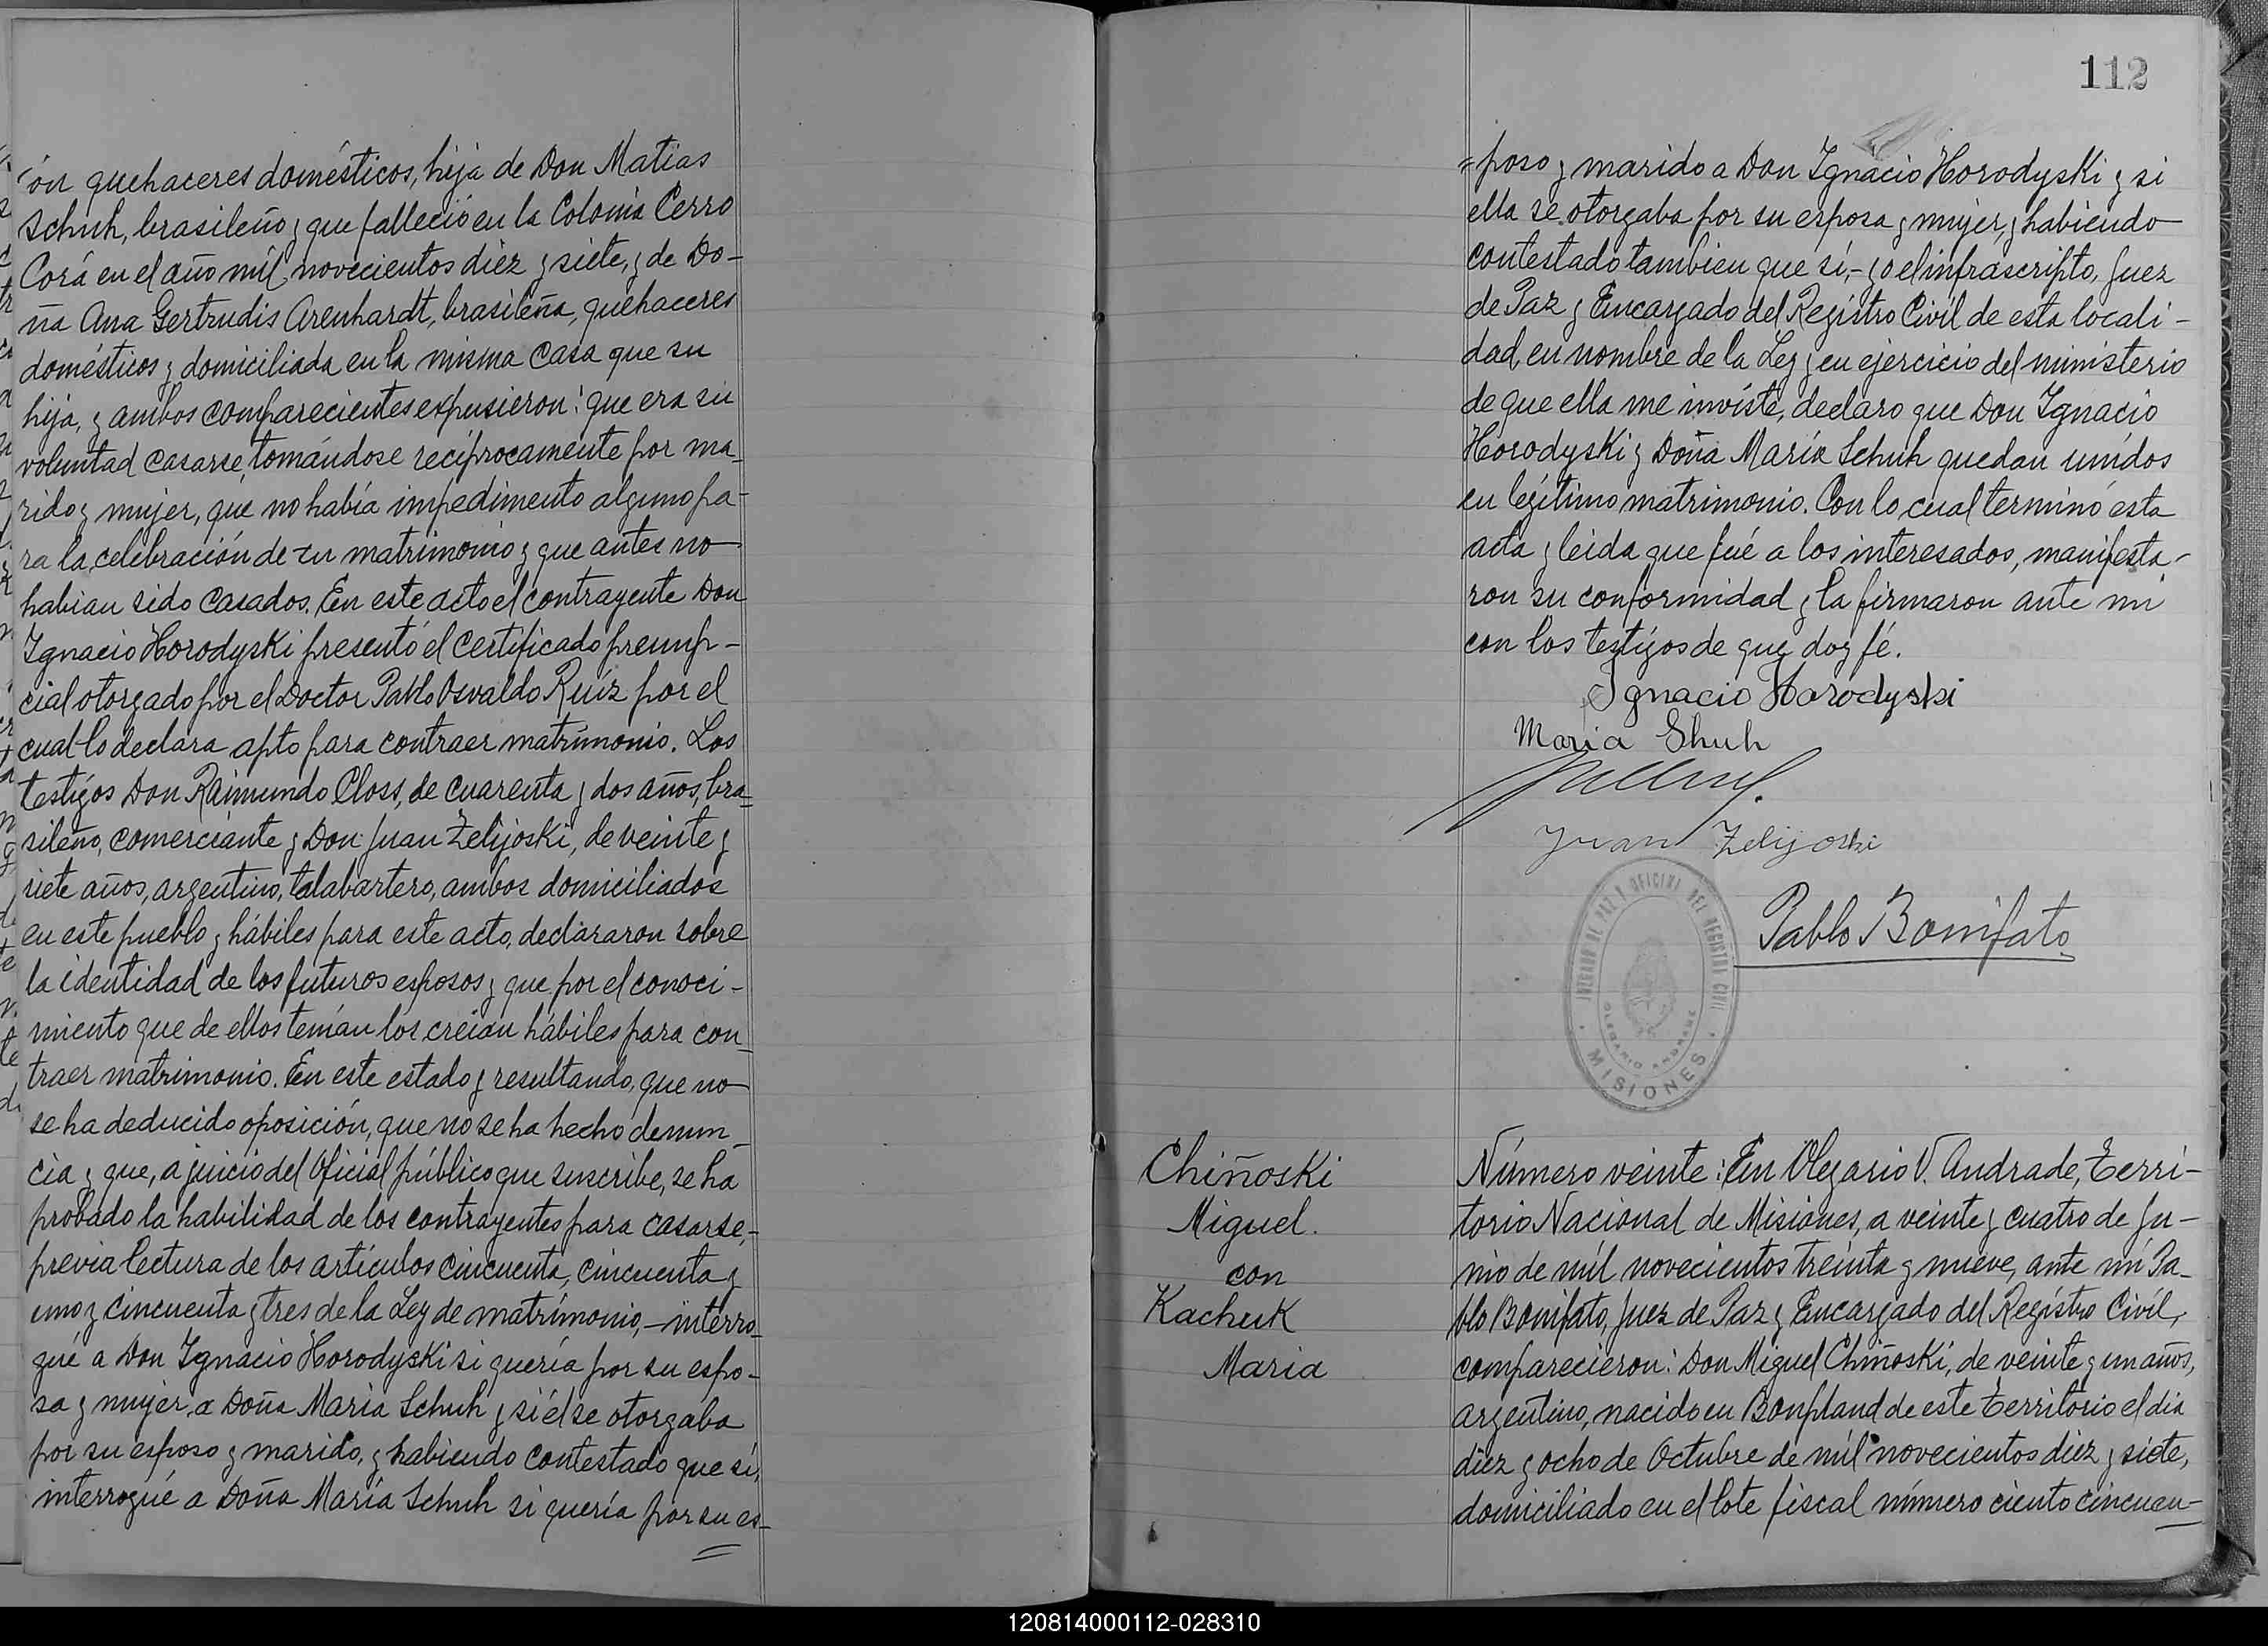 ón quehaceres domésticos, hija de Don Matias
Schuh, brasileño y que falleció en la Colonia Cerro
Corá en el año mil novecientos diez y siete, y de Do-
ña Ana Gertrudis Arenhardt, brasileña, quehaceres
domésticos y domiciliada en la misma casa que su
hija, y ambos comparecientes expusieron: que era su
voluntad casarse, tomándose recíprocamente por ma-
rido y mujer, que no había impedimento alguno pa-
ra la celebración de su matrimonio y que antes no
habian sido casados. En este acto el contrayente Don
Ignacio Horodyski presentó el certificado prenup-
cial otorgado por el Doctor Pablo Osvaldo Ruíz por el
cual lo declara apto para contraer matrimonio. Los
testigos Don Raimundo Closs, de cuarenta y dos años, bra-
sileño, comerciante y Don Juan Zelijoski, de veinte y
siete años, argentino, talabartero, ambos domiciliados
en este pueblo y hábiles para este acto, declararon sobre
la identidad de los futuros esposos y que por el conoci-
miento que de ellos tenían los creían hábiles para con-
traer matrimonio. En este estado y resultando, que no
se ha deducido oposición, que no se ha hecho denun-
cia y que, a juicio del Oficial público que suscribe, se ha
probado la habilidad de los contrayentes para casarse,-
previa lectura de los artículos cincuenta, cincuenta y
uno y cincuenta y tres de la Ley de matrimonio,-interro-
gué a Don Ignacio Horodyski si quería por su espo-
sa y mujer, a Doña María Schuh y si él se otorgaba
por su esposo y marido, y habiendo contestado que sí,
interrogué a Doña María Schuh si quería por su es-
112
=poso y marido a Don Ignacio Horodyski y si
ella se otorgaba por su esposa y mujer, y habiendo
contestado tambien que sí,- yo el infrascripto, Juez
de Paz y Encargado del Registro Civil de esta locali-
dad, en nombre de la Ley y en ejercicio del ministerio
de que ella me inviste, declaro que Don Ignacio
Horodyski y Doña María Schuh quedan unidos
en legítimo matrimonio. Con lo cual terminó esta
acta y leida que fué a los interesados, manifesta-
ron su conformidad y la firmaron ante mi
con los testigos de que doy fé.
Ignacio Horodyski
Maria Shuh
Juan Zelijoski
Pablo Bonifato
JUZGADO DE PAZ Y OFICINA DEL REGISTRO CIVIL
OLEGARIO ANDRADE
MISIONES
Chiñoski
Miguel.
con
Kachuk
Maria
Número veinte: En Olegario V. Andrade, Terri-
torio Nacional de Misiones, a veinte y cuatro de Ju-
nio de mil novecientos treinta y nueve, ante mí Pa-
blo Bonifato, Juez de Paz y Encargado del Registro Civil,
comparecieron: Don Miguel Chiñoski, de veinte y un años,
argentino, nacido en Bonpland de este territorio el dia
diez y ocho de Octubre de mil novecientos diez y siete,
domiciliado en el lote fiscal número ciento cincuen-
120814000112-028310